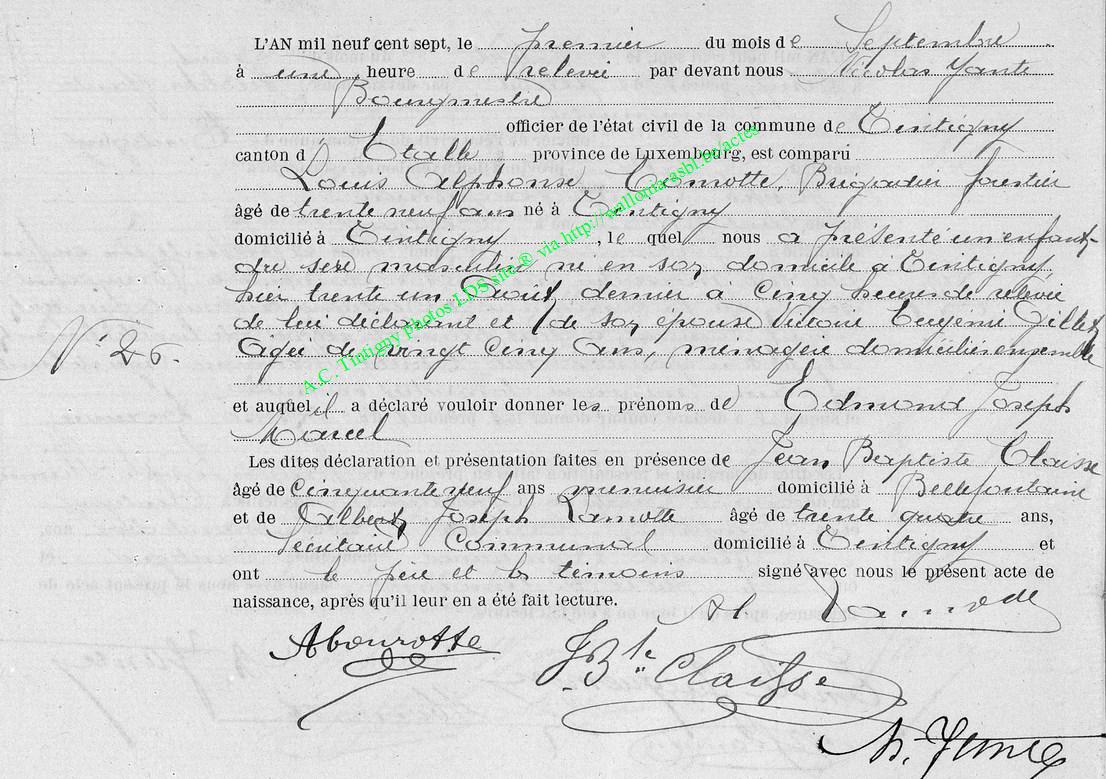 L'AN mil neuf cent sept, le premier du mois de Septembre
à une heure de relevée par devant nous Nicolas Yante
Bourgmestre
officier de l'état civil de la commune de Tintigny
canton d' Etalle province de Luxembourg, est comparu
Louis Alphonse Lamotte, Brigadier forestier
âgé de trente neuf ans né à Tintigny
domicilié à Tintigny, le quel nous a présenté un enfant
du sexe masculin né en son domicile à Tintigny,
hier trente un Août dernier à cinq heures de relevée
de lui déclarant et de son épouse Victoire Eugénie Gillet
Agée de vingt cinq ans, ménagère domiciliés ensemble
N° 26.
et auquel il a déclaré vouloir donner les prénoms de Edmond Joseph
Marcel
Les dites déclaration et présentation faites en présence de Jean Baptiste Claisse
âgé de cinquante neuf ans menuisier domicilié à Bellefontaine
et de Albert Joseph Lamotte âgé de trente quatre ans,
Secrétaire Communal domicilié à Tintigny et
ont le père et les témoins signé avec nous le présent acte de
naissance, après qu'il leur en a été fait lecture.
Lamotte
JBte Claisse
A.C. Tintigny photos LDS site ® via http://wallonia-asbl.be/actes